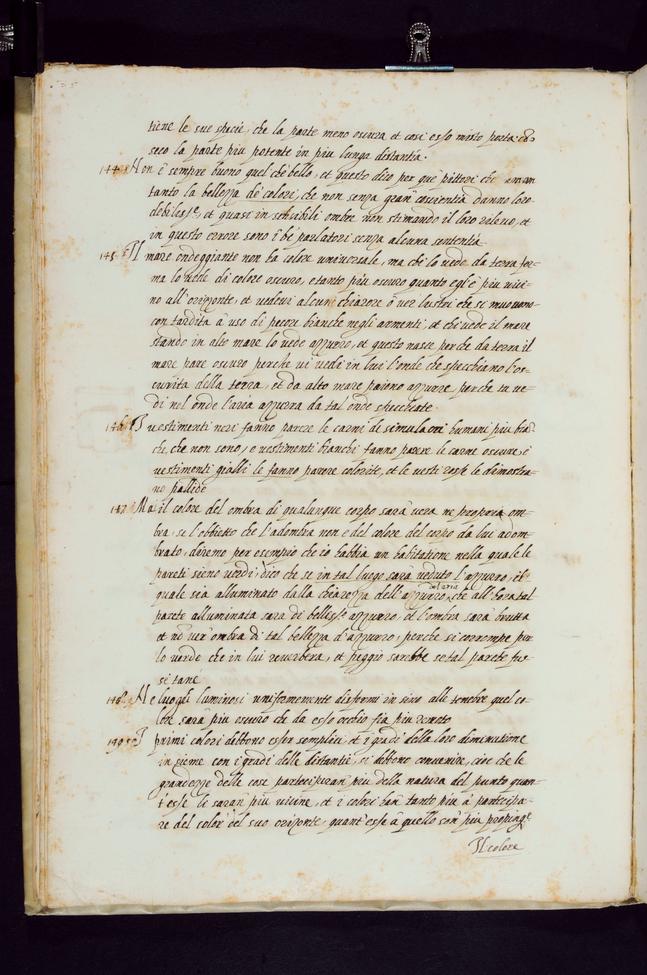 tiene le sue spetie, che la parte meno oscura et così esso misto porta co
seco la parte più potente in più lunga distantia.
144. Non è sempre buono quel ch'è bello, et questo dico per que' pittori che aman
tanto la bellezza de' colori, che non senza gran' coscientia danno loro
debiless.e et quasi insensibili ombre non stimando il loro rilievo, et
in questo errore sono i bé parlatori senza alcuna sententia
145. Il mare ondeggiante non ha colore universale, ma chi lo vede da terra fer-
ma lo vede di colore oscuro, e tanto più oscuro quanto egl'è più vici-
no all'orizonte, et vedevi alcuni chiarore ò ver lustri che si muovono
con tardità à uso di pecore bianche negli armenti, et chi vede il mare
stando in alto mare lo vede azzurro, et questo nasce perche da terra il
mare pare oscuro perche vi vedi in lui l'onde che specchiano l'os-
curità della terra, et da alto mare paiono azzurre perche tu ve-
di nel onde l'aria azzurra da tal onde specchiate.
146. I vestimenti neri fanno parere le carni de simulacri humani più bian
che, che non sono, e vestimenti bianchi fanno parere le carne oscure, e
vestimenti gialli le fanno parere colorite, et le vesti rosse le dimostra-
no pallide
147. Mai il colore del ombra di qualunque corpo sarà vera ne propria om-
bra, se l'obbietto che l'adombra non è del colore del corpo da lui adom-
brato, diremo per esempio che io habbia un habitatione nella quale le
pareti sieno verdi, dico che se in tal luogo sarà veduto l'azzurro, il
quale sia alluminato dalla chiarezza dell'azzurro, del aria che all'hora tal
parete alluminata sarà di belliss.o azzurro, et l'ombra sarà brutta
et nò ver ombra di tal bellezza d'azzurro, perche si corrompe per
lo verde che in lui reverbera, et peggio sarebbe se tal parete fus-
si tanè
148. Ne luoghi luminosi uniformemente disformi in sino alle tenebre quel co-
lore sarà più oscuro che da esso occhio fia più remoto
149. I primi colori debbono esser semplici, et i gradi della loro diminutione
insieme con i gradi delle distantie, si debbono convenire, cioè che le
grandezze delle cose parteciperan più della natura del punto quan-
t'esse le saran più vicine, et i colori han tanto più à partecipa-
re del color del suo orizonte, quant'esse à quello son' più propinq.e
Il colore